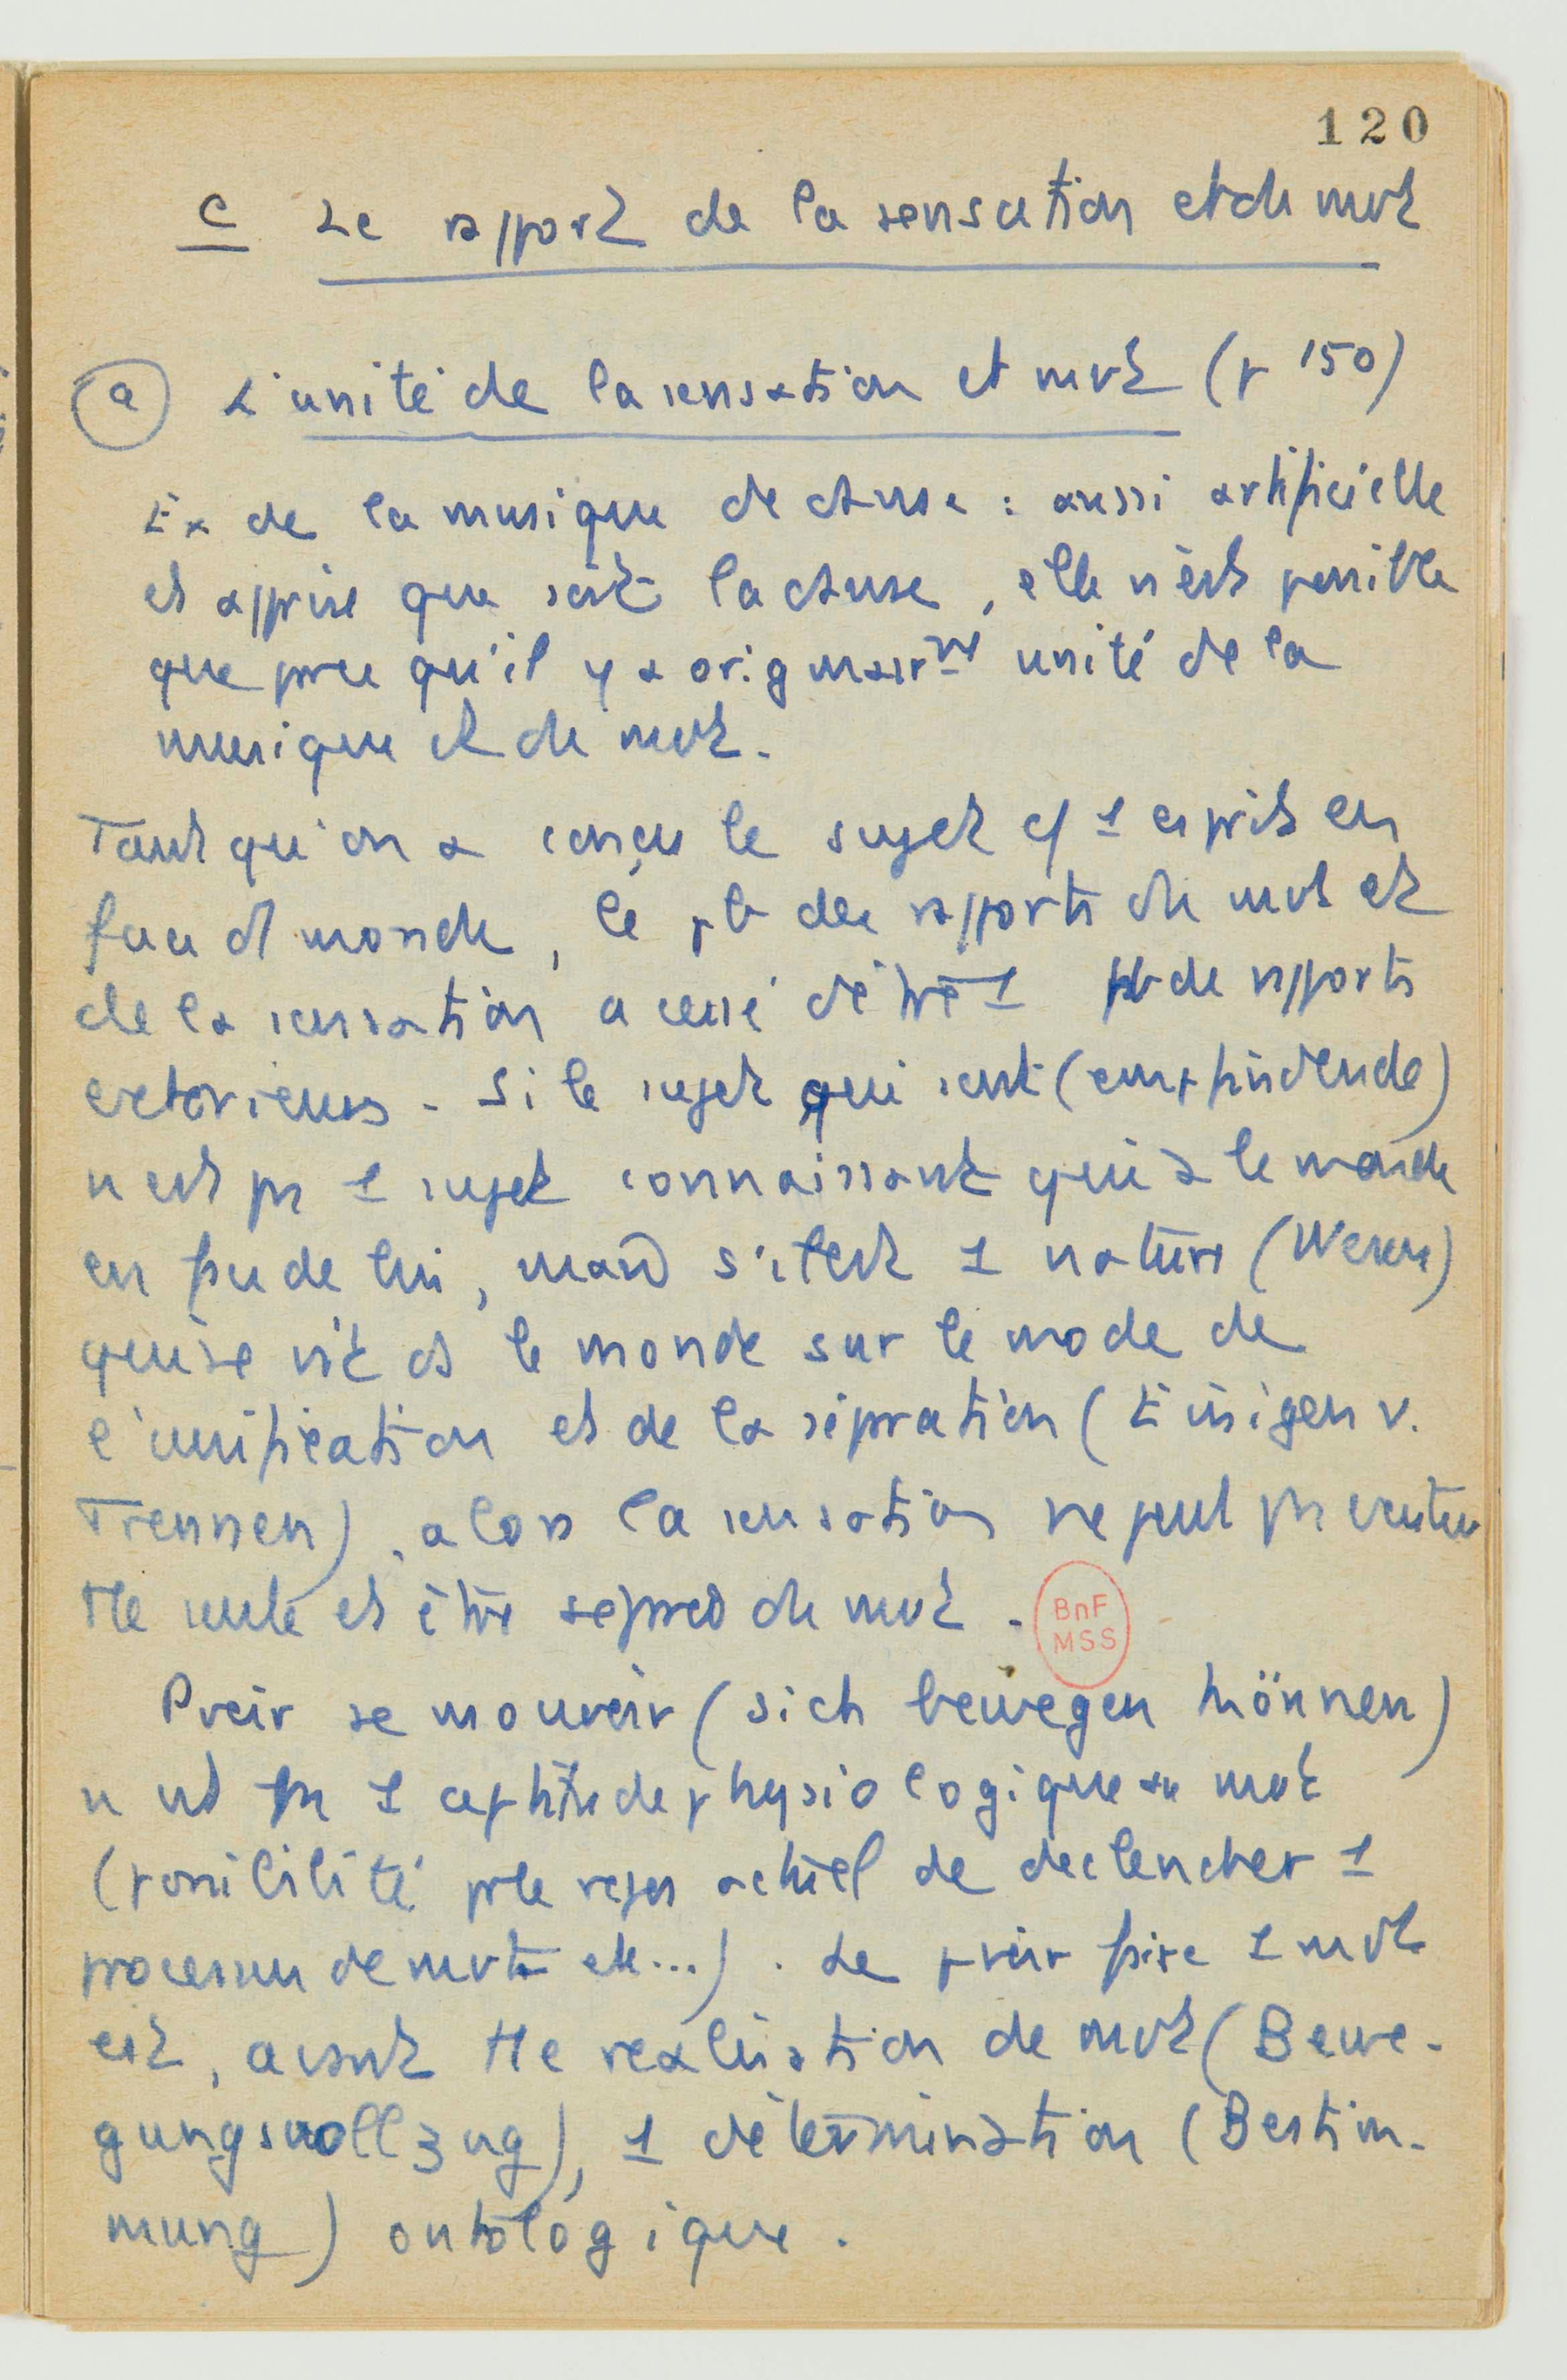 120
C Le rapport de la sensation et du mvt
a L'unité de la sensation et mvt (p 150)
Ex de la musique de danse : aussi artificielle
et apprise que soit la danse, elle n'est possible
que pce qu'il y a originairmt unité de la
musique et du mvt.
Tant qu'on a conçu le sujet c/ 1 esprit en
face d monde, le pb des rapports du mvt et
de la sensation a cessé d'être 1 pb de rapports
exterieurs. Si le sujet qui sent (empfindende)
n'est ps 1 sujet connaissant qui a le monde
en face de lui, mais s'il est 1 nature (Wesen)
qui se vit ds le monde sur le mode de
l'unification et de la sépration (Einigen v.
Trennen), alors la sensation ne peut ps
tte seule et être séprée du mvt.
BnF
MSS
Pvoir se mouvoir (sich bewegen können)
n'est ps 1 aptitude physiologique au mvt
(possibilité pr le actuel de declencher 1
processus de mvts etc...). Le pvoir faire 1 mvt
est, avant tte realisation de mvt (Bewe-
gungsvollzug), 1 détermination (Bestim-
mung) ontologique.